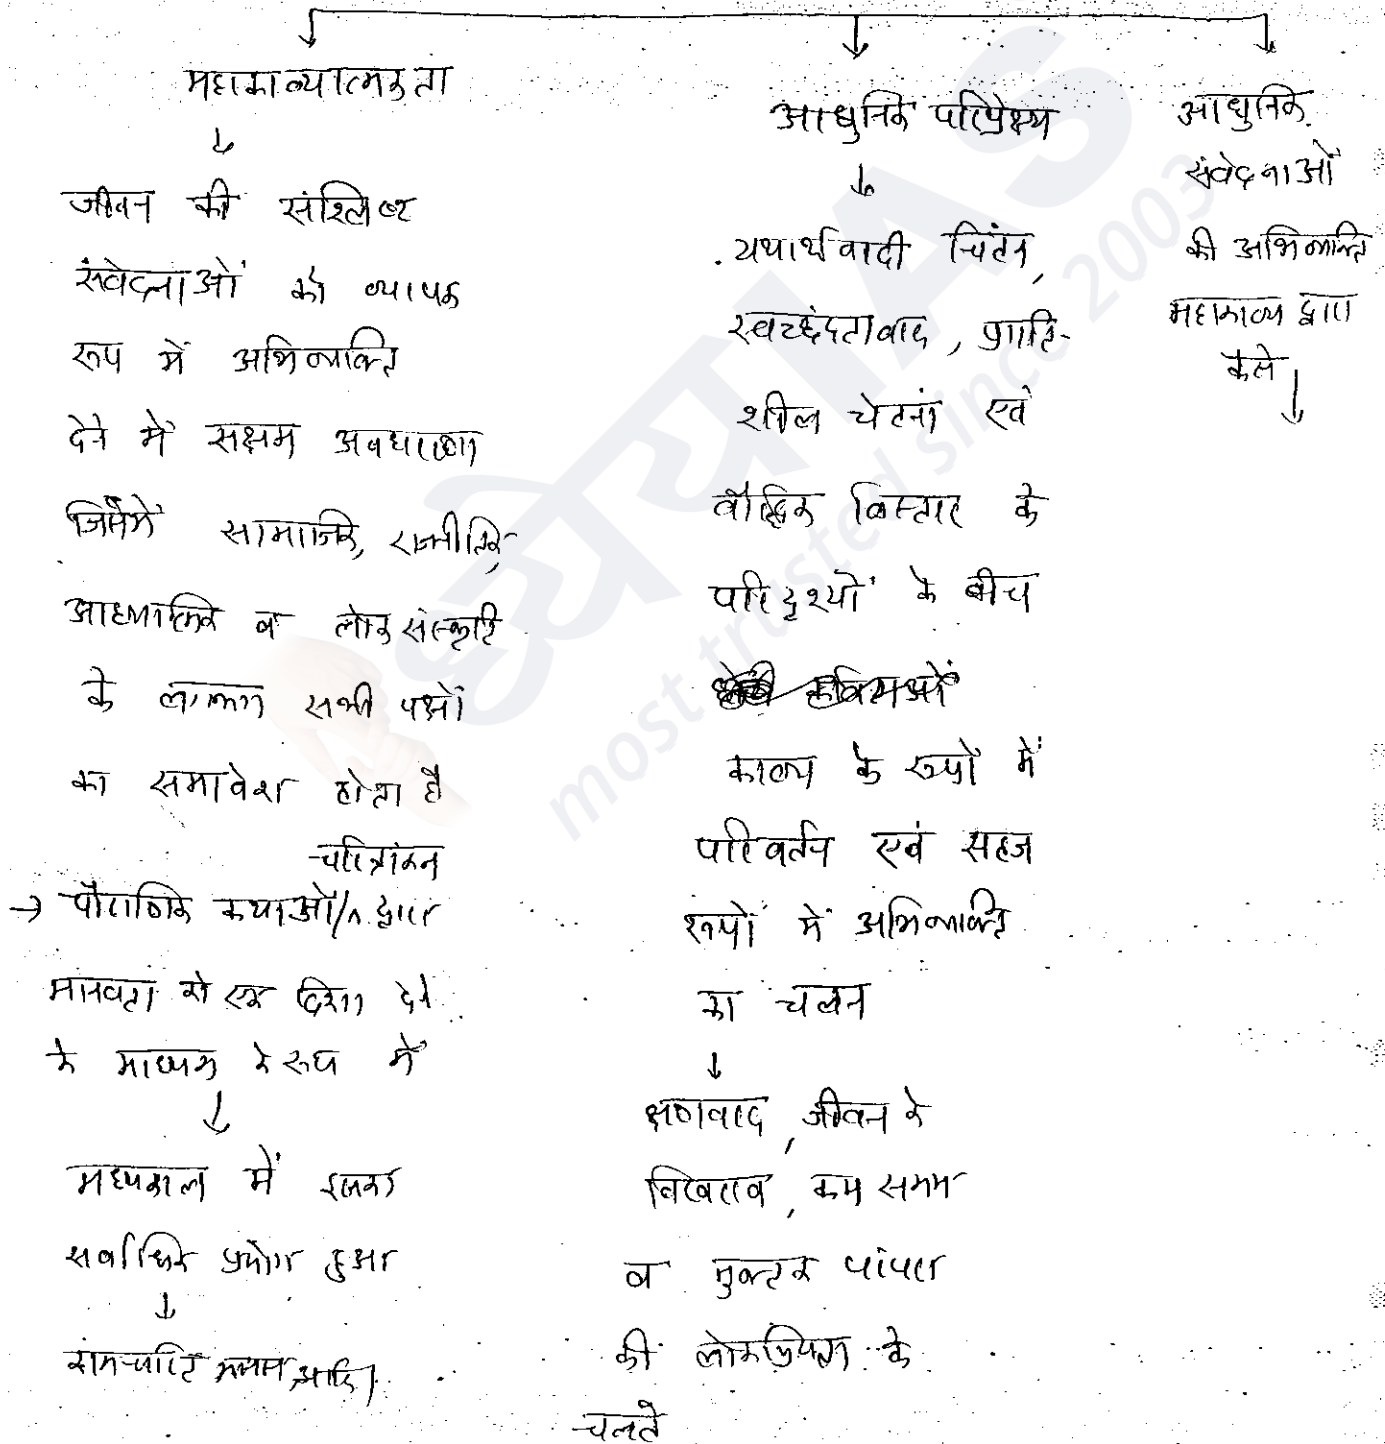 महाकाव्यात्मकता
जीवन की संश्लिष्ट
संवेदनाओं को व्यापक
रूप में अभिव्यक्ति
देने में सक्षम अवधारणा
जिसमें सामाजिक, राजनीतिक,
आध्यात्मिक व लोक संस्कृति
के लगभग सभी पक्षों
का समावेश होता है
चरित्रांकन
→ पौराणिक कथाओं/^ द्वारा
मानवता को एक दिशा देने
के माध्यम के रूप में
मध्यकाल में इसका
सर्वाधिक प्रयोग हुआ
रामचरित मानस, आदि।
आधुनिक परिप्रेक्ष्य
यथार्थवादी चिंतन,
स्वच्छंदतावाद, प्रगति-
शील चेतना एवं
बौद्धिक विस्तार के
परिदृश्यों के बीच
काव्य के रूपों में
परिवर्तन एवं सहज
रूपों में अभिव्यक्ति
का चलन
क्षणवाद, जीवन के
बिखराव, कम समय
व मुक्तक परंपरा
की लोकप्रियता के
चलते
आधुनिक
संवेदनाओं
की अभिव्यक्ति
महाकाव्य द्वारा
कैसे
ध्येय IAS
most trusted since 2003